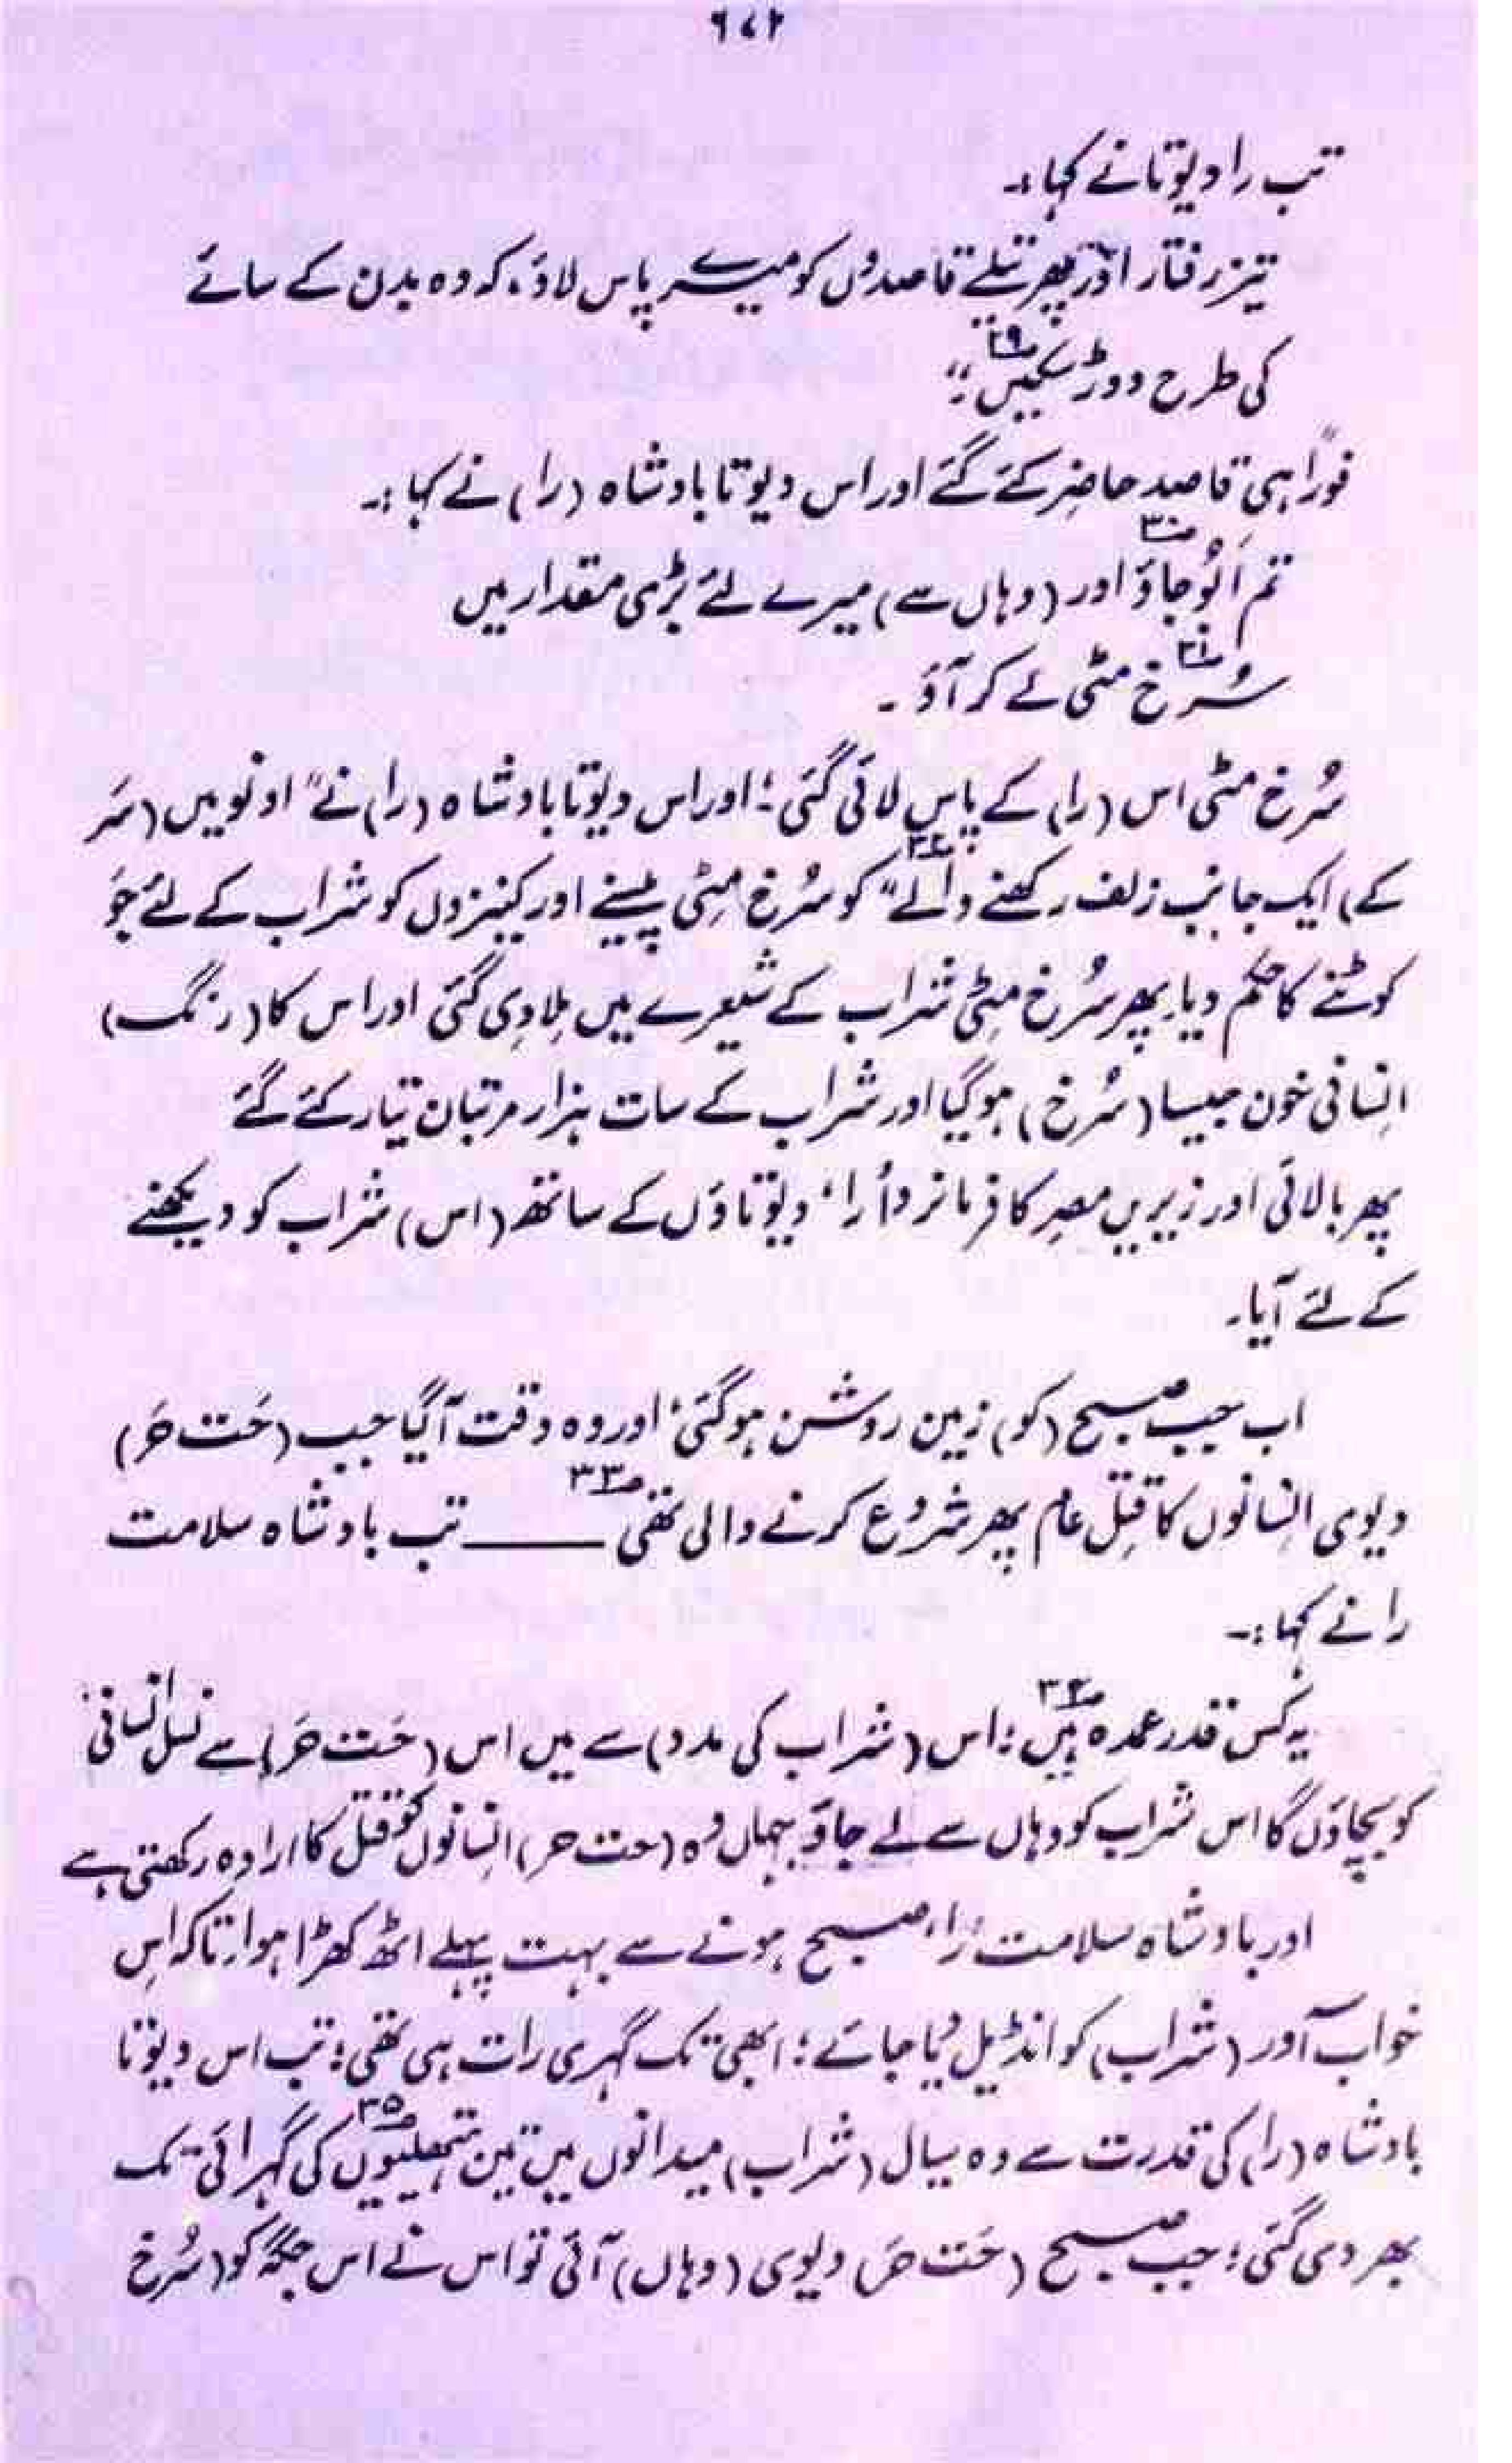 ۹۷۲
تب را دیوتا نے کہا:۔
تیز رفتار اور پھرتیلے قاصدوں کو میرے پاس لاؤ، کہ وہ بدن کے سائے
کی طرح دوڑ سکیں ۲۹؎"
فوراً ہی قاصد حاضر کئے گئے اور اس دیوتا بادشاہ (را) نے کہا:۔
تم اَبُو ۳۰؎ جاؤ اور (وہاں سے) میرے لئے بڑی مقدار میں
سُرخ مٹی ۳۱؎ لے کر آؤ ۔
سُرخ مٹی اس (را) کے پاس لائی گئی؛ اور اس دیوتا بادشاہ (را) نے "اونو میں (سَر
کے) ایک جانب زلف رکھنے والے ۳۲؎" کو سُرخ مِٹی پیسنے اور کنیزوں کو شراب کے لئے جَو
کوٹنے کا حکم دیا۔ پھر سُرخ مِٹی شراب کے شیرے میں مِلا دِی گئی اور اس کا (رنگ)
اِنسانی خون جیسا (سُرخ) ہوگیا اور شراب کے سات ہزار مرتبان تیار کئے گئے
پھر بالائی اور زیریں مصِر کا فرمانروا "را" دیوتاؤں کے ساتھ (اس) شراب کو دیکھنے
کے لئے آیا۔
اب جب صبح (کو) زمین روشن ہوگئی؛ اور وہ وقت آگیا جب (حَت حَر)
دیوی اِنسانوں کا قتلِ عام پھر شروع کرنے والی تھی ۳۳؎ ــــــ تب بادشاہ سلامت
را نے کہا:۔
یہ کس قدر عمدہ ہیں ۳۴؎؛ اس (شراب کی مدد) سے میں اس (حَت حَر) سے نسل انسانی
کو بچاؤں گا اس شراب کو وہاں سے لے جاؤ جہاں وہ (حت حر) انسانوں کو قتل کا ارادہ رکھتی ہے
اور بادشاہ سلامت 'را' صبح ہونے سے بہت پہلے اٹھ کھڑا ہوا۔ تاکہ اس
خواب آور (شراب) کو انڈیل دیا جائے؛ ابھی تک گہری رات ہی تھی؛ تب اس دیوتا
بادشاہ (را) کی قدرت سے وہ سیال (شراب) میدانوں میں تین ہتھیلیوں ۳۵؎ کی گہرائی تک
بھر دی گئی؛ جب صبح (حَت حَر دیوی (وہاں) آئی تو اس نے اس جگہ کو (سُرخ